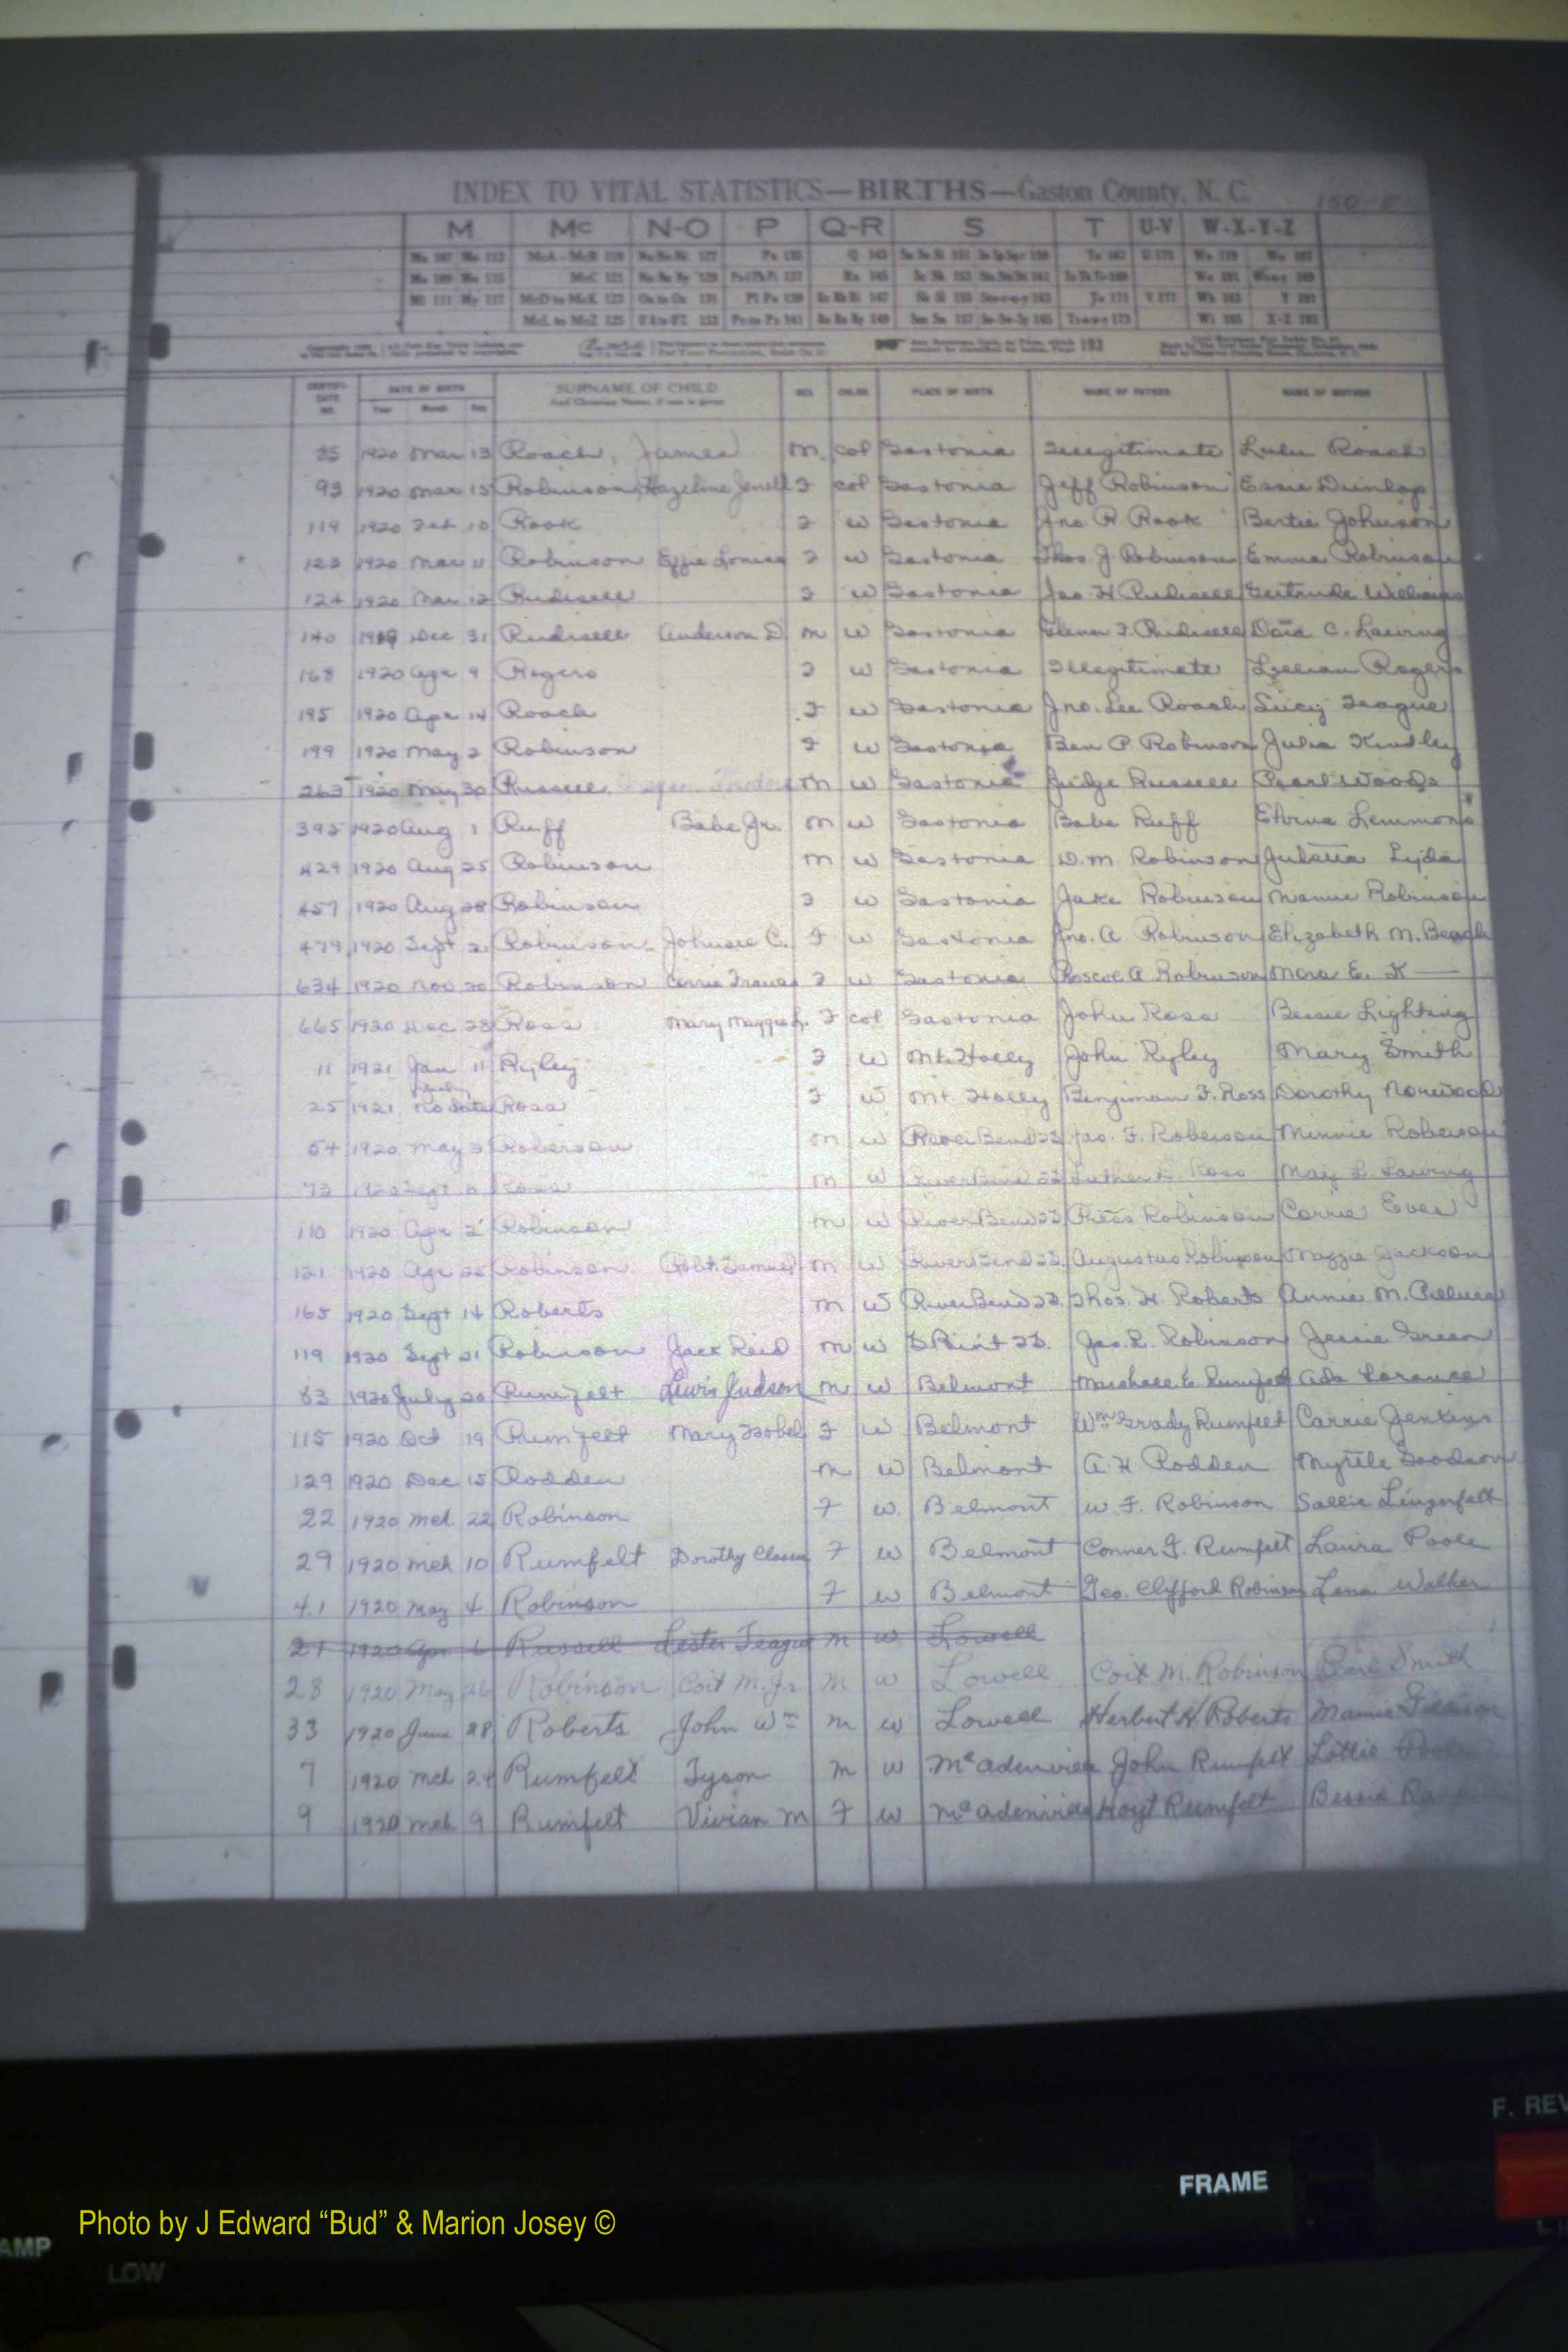 INDEX TO VITAL STATISTICS—BIRTHS—Gaston County, N. C. 150-E
M Mc N-O P Q-R S T U-V W-X-Y-Z
DATE OF BIRTH SURNAME OF CHILD SEX COLOR PLACE OF BIRTH NAME OF FATHER NAME OF MOTHER
Year Month Day And Christian Name, if one is given
85 1920 Mar 13 Roach, James M. col Gastonia Illegitimate Lula Roach
93 1920 Mar 15 Robinson, Hazeline Jenell F col Gastonia Jeff Robinson Essie Dunlap
119 1920 Feb 10 Rook F W Gastonia Jno R Rook Bertie Johnson
123 1920 Mar 11 Robinson Effie Louise F W Gastonia Thos J. Robinson Emma Robinson
124 1920 Mar 12 Rudisell F W Gastonia Jas H Rudisell Gertrude Williams
140 1919 Dec 31 Rudisell Anderson D M W Gastonia Glenn F. Rudisell C. Lawing
168 1920 Apr 9 Rogers F W Gastonia Illegitimate Lillian Rogers
195 1920 Apr 14 Roach F W Gastonia Jno. Lee Roach Lucy Teague
199 1920 May 2 Robinson F W Gastonia Ben P. Robinson Julia Kindley
263 1920 May 30 Russell M W Gastonia Judge Russell Pearl Woods
395 1920 Aug 1 Ruff Babe Jr. M W Gastonia Babe Ruff Elvina Lemmons
429 1920 Aug 25 Robinson M W Gastonia D. M. Robinson Lyda
457 1920 Aug 28 Robinson F W Gastonia Jake Robinson Mamie Robinson
479 1920 Sept 2 Robinson Johnsie C. F W Gastonia Jno. A Robinson Elizabeth M. Beach
634 1920 Nov 20 Robinson Carrie Frances F W Gastonia Roscoe A Robinson Mora E. K—
665 1920 Dec 28 Ross Mary Maggie L. F col Gastonia John Ross Bessie Lighting
11 1921 Jan 11 Ryley F W Mt. Holly John Ryley Mary Smith
25 1921 No date Ross F W Mt. Holly Benjiman F. Ross Dorothy Norwood
54 1920 May 3 Roberson M W River Bend TS Jas. F. Roberson Minnie Roberson
73 1920 Sept Ross M W River Bend TS Luther L. Ross May L. Lawing
110 1920 Apr 2 Robinson M W River Bend TS Robinson Carrie
121 1920 Apr 25 Robinson Robt. Samuel M W River Bend TS. Augustus Robinson Maggie Jackson
165 1920 Sept 14 Roberts M W River Bend TS. Thos. H. Roberts Annie M.
119 1920 Sept 21 Robinson Jack Reid M W S Point TS. Jas. L. Robinson Jessie Green
83 1920 July 20 Rumfelt Lewis Judson M W Belmont Marshall E. Rumfelt Ada Lorance
115 1920 Oct 19 Rumfelt Mary Isobel F W Belmont Wm Grady Rumfelt Carrie Jenkins
129 1920 Dec 15 Rodden M W Belmont A. H Rodden Myrtle Goodson
22 1920 Mch 22 Robinson F W. Belmont W. F. Robinson Sallie Lingerfelt
29 1920 Mch 10 Rumfelt Dorothy F W Belmont Conner F. Rumfelt Laura Poole
41 1920 May 4 Robinson F W Belmont Geo. Clifford Robinson Lena Walker
21 1920 Apr 6 Russell Lester Teague M W Lowell
28 1920 May 26 Robinson Coit M. Jr. M W Lowell Coit M. Robinson Pearl Smith
33 1920 June 28 Roberts John Wm M W Lowell Herbert H. Roberts Mamie
7 1920 Mch 24 Rumfelt Tyson M W McAdenville John Rumfelt Lottie
9 1920 Mch 9 Rumfelt Vivian M F W McAdenville Hoyt Rumfelt Bessie
F. REV
FRAME
Photo by J Edward “Bud” & Marion Josey ©
AMP
LOW